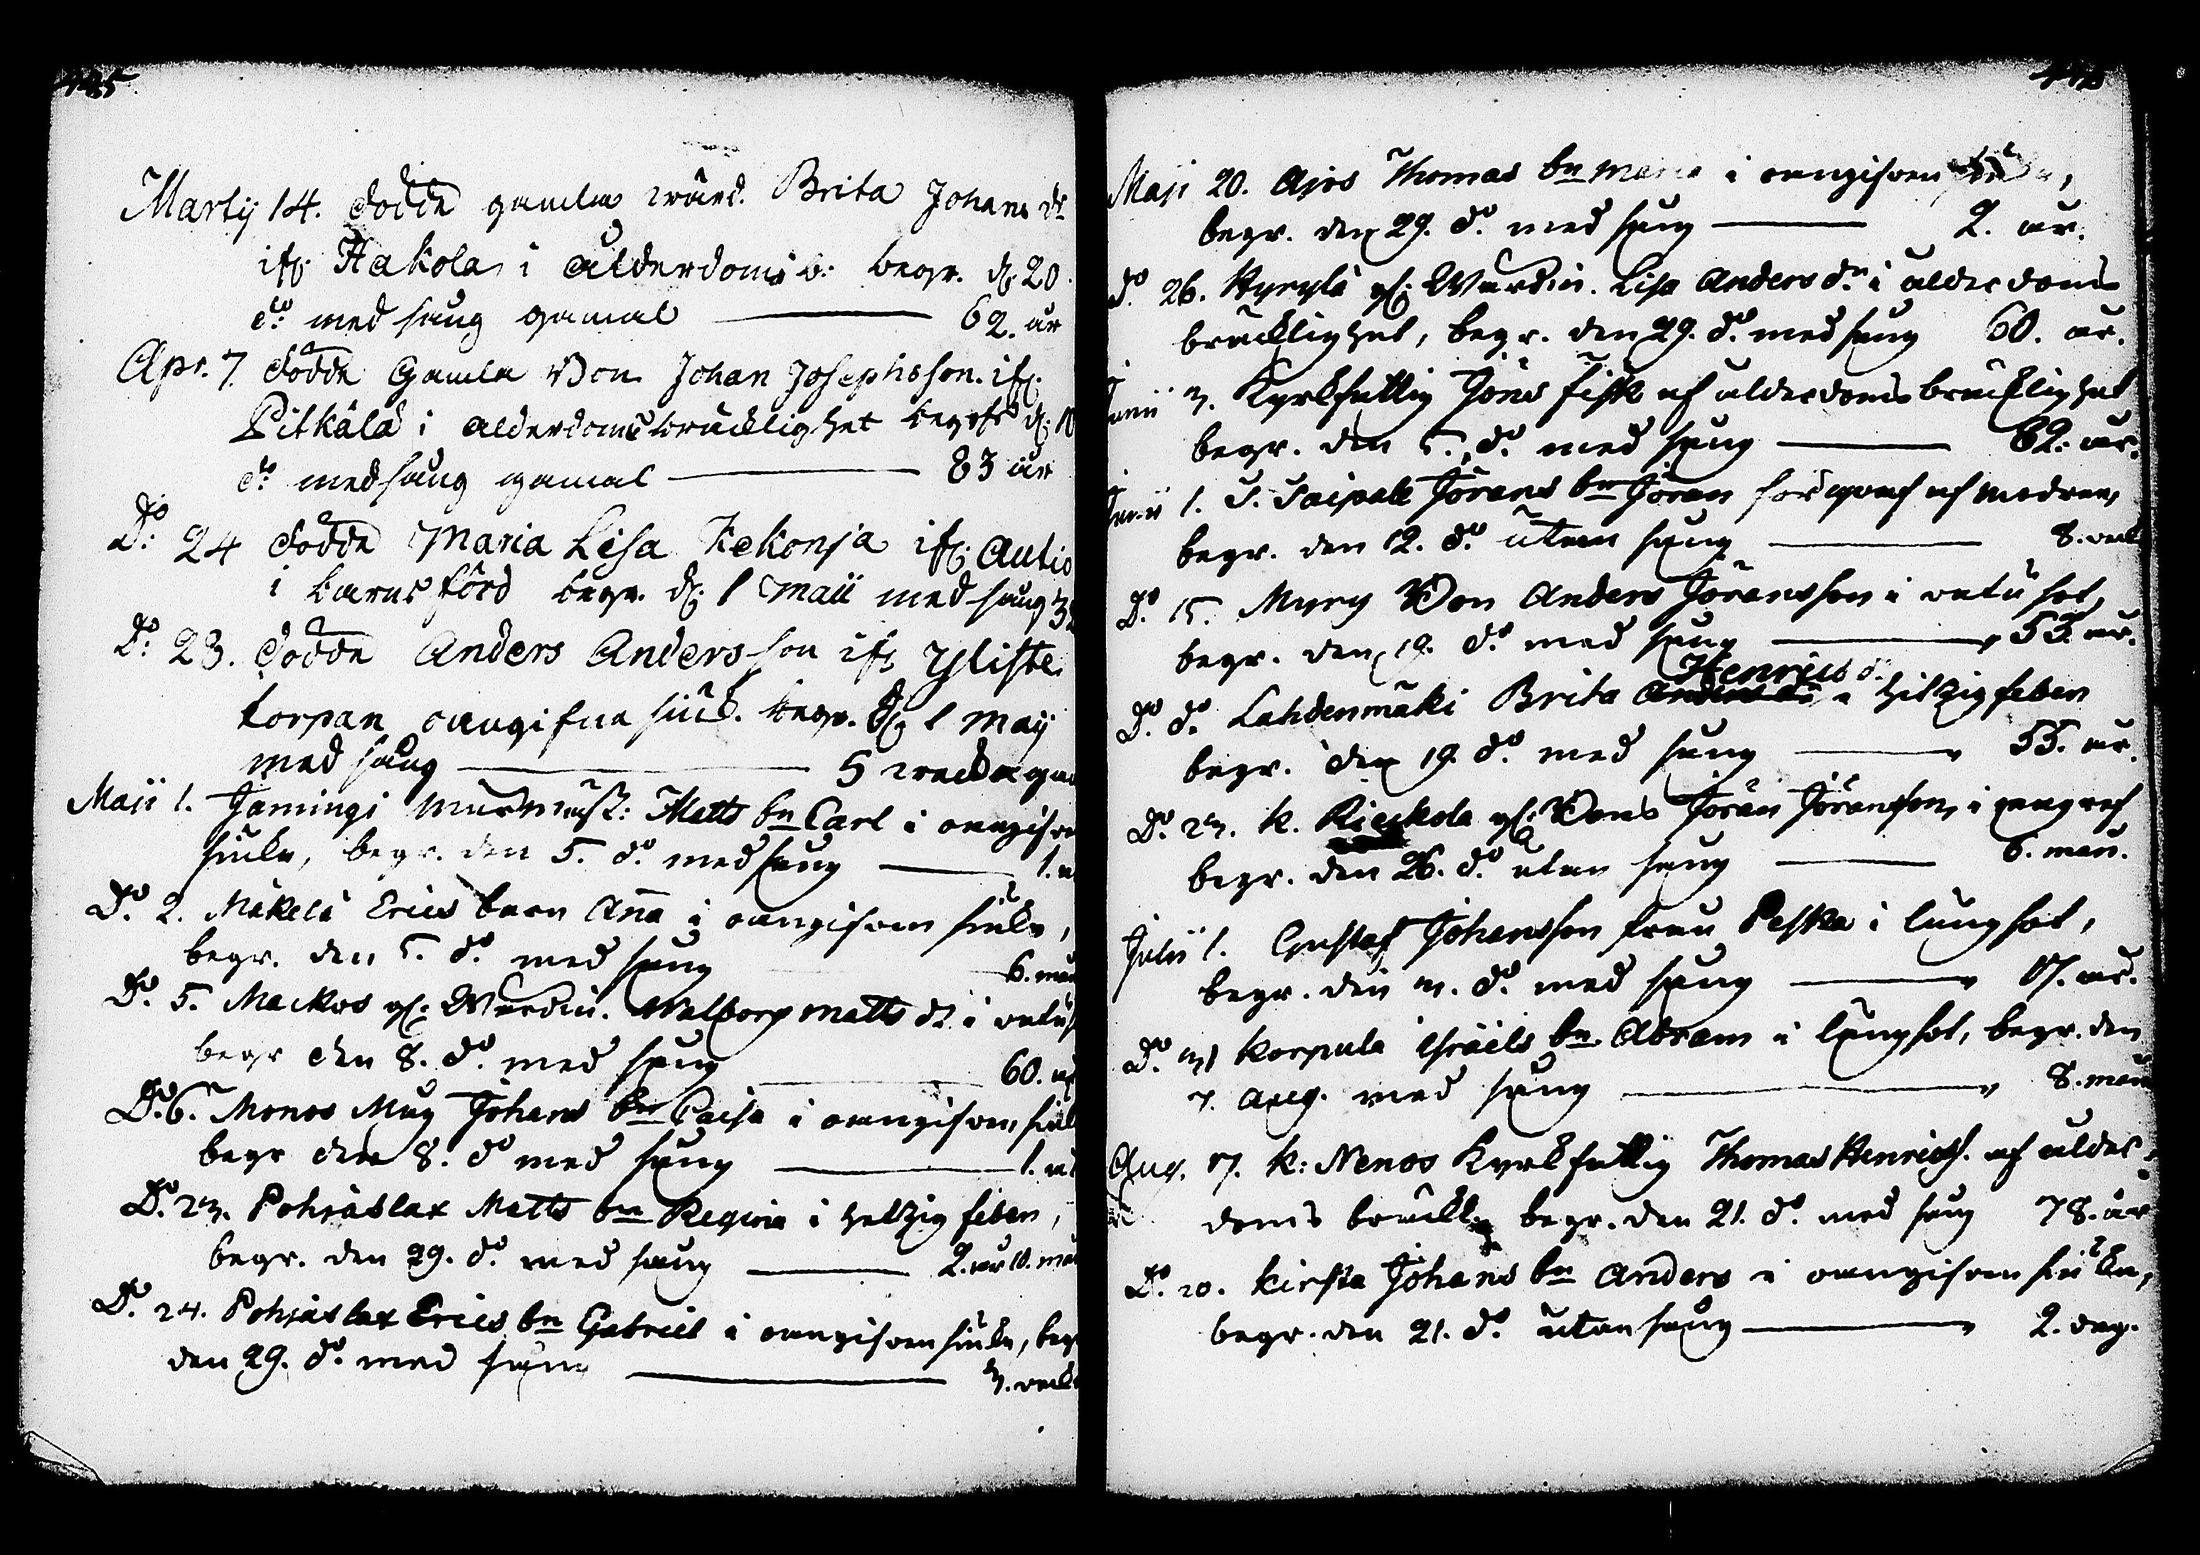 Martij 14. dödde gamla wärd. Brita Johans dr
ifr. Hakola i ålderdoms b. begr. d. 20
do med sång gamal 62. år
Apr. 7. dödde Gamla Bon. Johan Josephsson. ifr.
Pitkälä i ålderdoms bräcklighet begrofs d. 10
do med sång gamal 83 år
Do: 24 dödde Maria Lisa Kekonja ifr. Autio
i barns börd begr. d. 1 Maii med sång
Do: 23. dödde Anders Andersson ifr. Yliste
torpan oangifne siuk. begr. d. 1 Maij
med sång 5 weckor
Maii 1. Jamingi Matts bn Carl i oangifven
siuka, begr. den 5. do. med sång 1.
Do. 2. Mäkelä Erics barn Anna i oangifven siuka,
begr. den 5. do. med sång 6. mån
Do. 5. Mackos gl: Werdin. Walborg Matts dr i
begr den 8. do. med sång 60.
Do. 6. Monos Måg Johans bn Caisa i oangifven siuk
begr den 8. do med sång 1.
Do. 23. Pohjaslax Matts bn Regina i hetzig feber,
begr. den 29. do. med sång 2. år 10. mån
Do. 24. Pohjaslax Erics bn Gabriel i oangifven siuka, begr
den 29. do. med sång 3. weck
Maji 20. Ajos Thomas bn Maria i oangifven siuka,
begr. den 29. do. med sång 2. år.
do. 26. Hyrylä gl: Wärdin. Lisa Anders dr i ålderdoms
bräcklighet, begr. den 29. do. med sång 60. år.
Junii 3. Kyrkfattig Jöns Fisk af ålderdoms bräcklighet
begr. den 5. do. med sång 82. år.
Junii 1. S. Saipale Jörans bn Jöran förqwaf af modren,
begr. den 12. do. utan sång 8. weck
Do. 15. Myry Bon Anders Jöransson i
begr. den 19. do. med sång 55. år.
Henrics dr
Do. do. Lahdenmäki Brita i hitzig feber
begr. den 19. do. med sång 55. år.
Do. 23. K. Rieskola gl: Bons Jöran Jöransson, i
begr. den 26. do. utan sång 6. mån.
Julii 1. Gustaf Johansson från Peska i lungsot,
begr. den 3. do. med sång 17. år.
Do. 31 Korpula Israels bn Abram i lungsot, begr. den
7. Aug. med sång 8. mån
Aug. 17. K: Nenos Kyrkfattig Thomas Henrichs. af ålder
doms bräckl. begr. den 21. do. med sång 78. år
Do. 20. Kirsta Johans bn Anders i oangifven siuka,
begr. den 21. do. utan sång 2. dag.